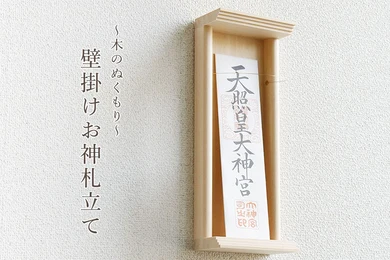 ~木のぬくもり~
壁掛けお神札立て
天照皇大神宮